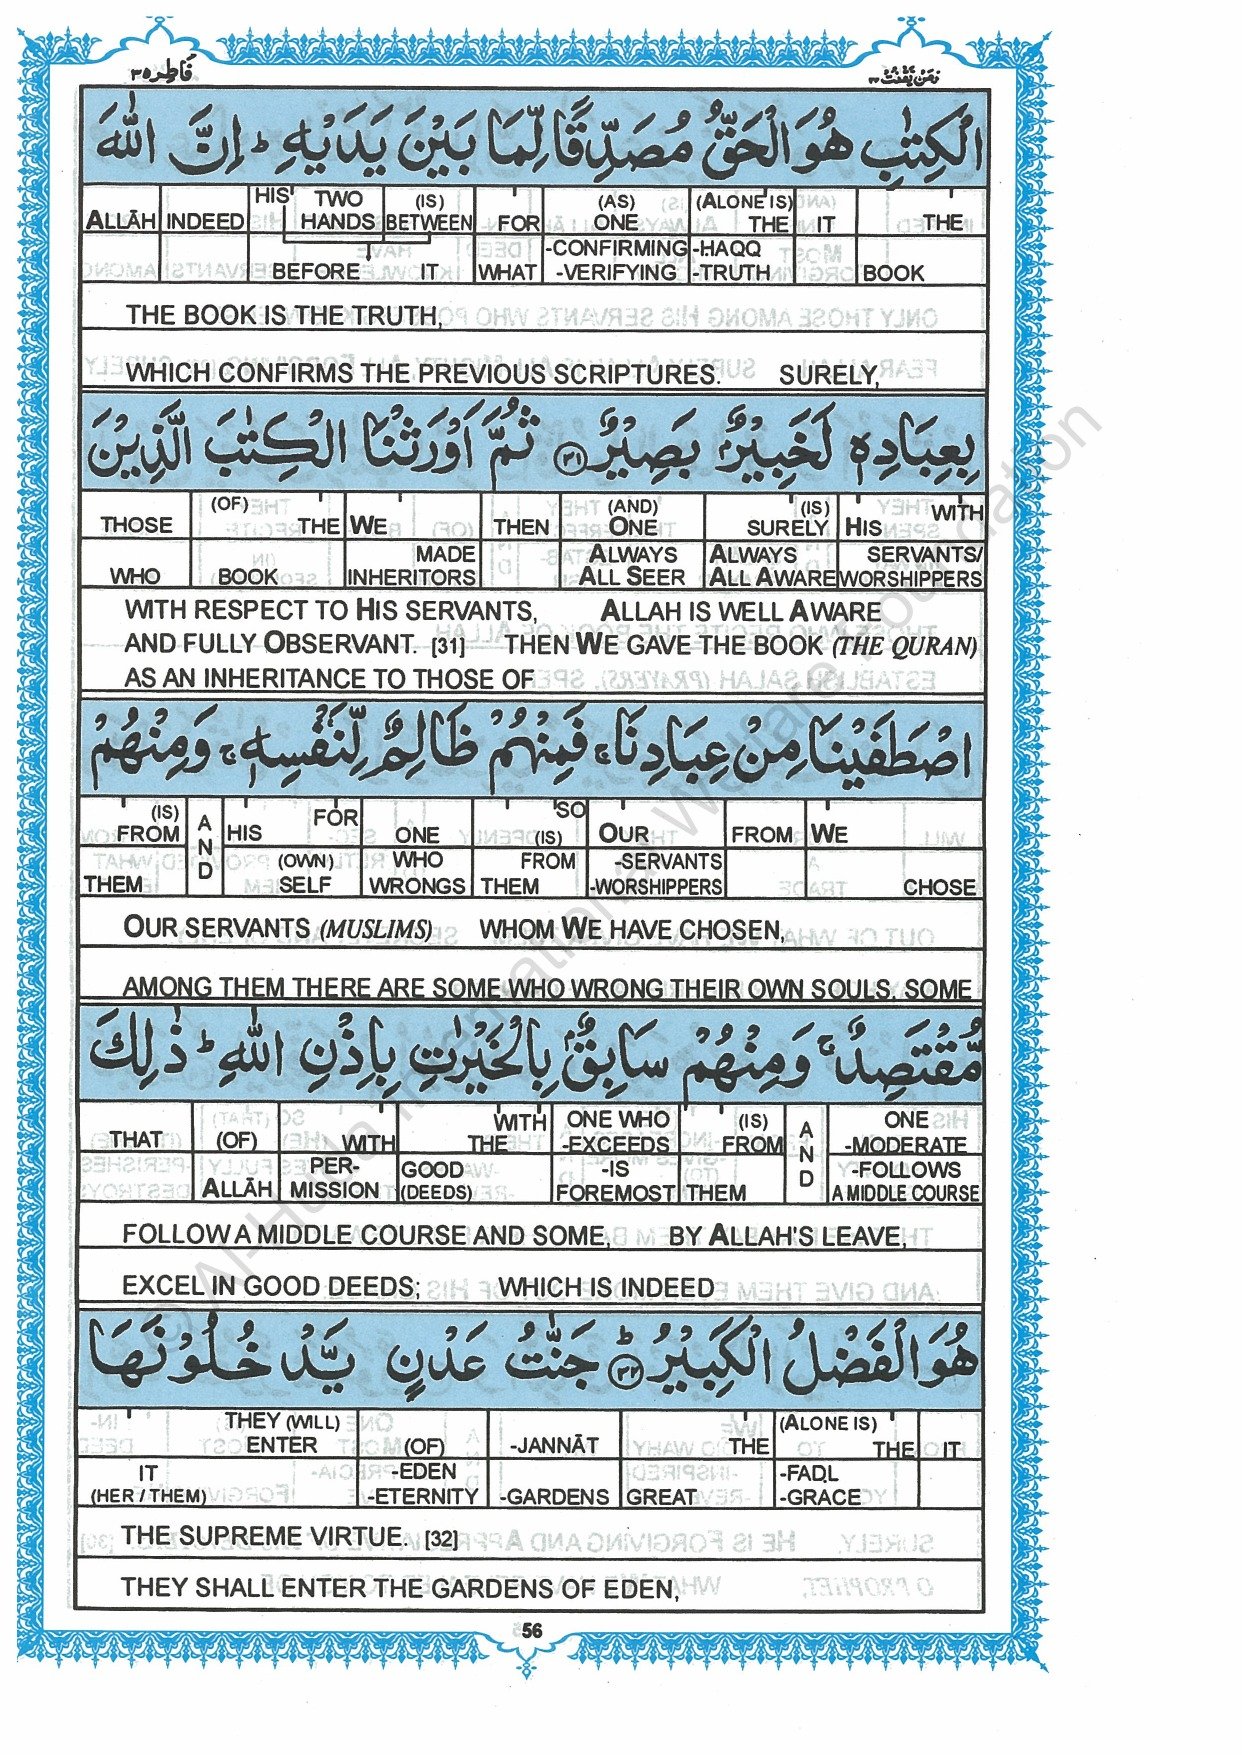 فَاطِر ٣٥
وَمَنْ يَّقْنُتْ ٢٢
الْكِتٰبِ هُوَ الْحَقُّ مُصَدِّقًا لِّمَا بَيْنَ يَدَيْهِ ؕ اِنَّ اللّٰهَ
ALLĀH INDEED HIS TWO HANDS (IS) BETWEEN FOR (AS) ONE (ALONE IS) THE IT THE
BEFORE IT WHAT -CONFIRMING -VERIFYING -HAQQ -TRUTH BOOK
THE BOOK IS THE TRUTH,
WHICH CONFIRMS THE PREVIOUS SCRIPTURES. SURELY,
بِعِبَادِهٖ لَخَبِيْرٌۢ بَصِيْرٌ ﴿٣١﴾ ثُمَّ اَوْرَثْنَا الْكِتٰبَ الَّذِيْنَ
THOSE (OF) THE WE THEN (AND) ONE (IS) SURELY HIS WITH
WHO BOOK MADE INHERITORS ALWAYS ALL SEER ALWAYS ALL AWARE SERVANTS/ WORSHIPPERS
WITH RESPECT TO HIS SERVANTS, ALLAH IS WELL AWARE
AND FULLY OBSERVANT. [31] THEN WE GAVE THE BOOK (THE QURAN)
AS AN INHERITANCE TO THOSE OF
اصْطَفَيْنَا مِنْ عِبَادِنَا ۚ فَمِنْهُمْ ظَالِمٌ لِّنَفْسِهٖ ۚ وَمِنْهُمْ
(IS) FROM AND HIS FOR ONE SO (IS) OUR FROM WE
THEM (OWN) SELF WHO WRONGS FROM THEM -SERVANTS -WORSHIPPERS CHOSE
OUR SERVANTS (MUSLIMS) WHOM WE HAVE CHOSEN,
AMONG THEM THERE ARE SOME WHO WRONG THEIR OWN SOULS. SOME
مُّقْتَصِدٌ ۚ وَمِنْهُمْ سَابِقٌۢ بِالْخَيْرٰتِ بِاِذْنِ اللّٰهِ ؕ ذٰلِكَ
THAT (OF) WITH WITH THE ONE WHO -EXCEEDS (IS) FROM AND ONE -MODERATE
ALLĀH PER- MISSION GOOD (DEEDS) -IS FOREMOST THEM -FOLLOWS A MIDDLE COURSE
FOLLOW A MIDDLE COURSE AND SOME, BY ALLAH'S LEAVE,
EXCEL IN GOOD DEEDS; WHICH IS INDEED
هُوَ الْفَضْلُ الْكَبِيْرُ ؕ ﴿٣٢﴾ جَنّٰتُ عَدْنٍ يَّدْخُلُوْنَهَا
THEY (WILL) ENTER (OF) -JANNĀT THE (ALONE IS) THE IT
IT (HER / THEM) -EDEN -ETERNITY -GARDENS GREAT -FADL -GRACE
THE SUPREME VIRTUE. [32]
THEY SHALL ENTER THE GARDENS OF EDEN,
56
© Al-Huda International Welfare Foundation